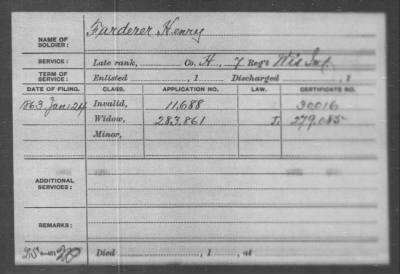 NAME OF SOLDIER: Furderer Henry
SERVICE: Late rank, Co. H, 7 Reg't Wis Inf.
TERM OF SERVICE: Enlisted , 1 Discharged , 1
DATE OF FILING. CLASS. APPLICATION NO. LAW. CERTIFICATE NO.
1863 Jan: 24 Invalid, 11,688 30016
Widow, 283,861 J. 279,085
Minor,
ADDITIONAL SERVICES:
REMARKS:
Died , 1 , at